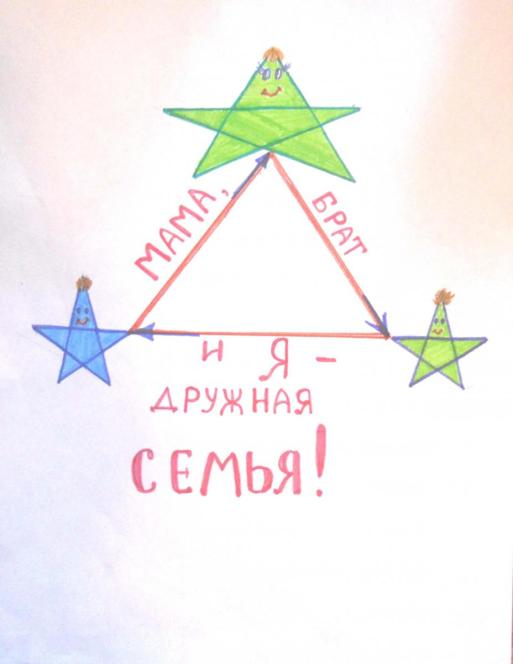 МАМА,
БРАТ
и Я -
ДРУЖНАЯ
СЕМЬЯ!